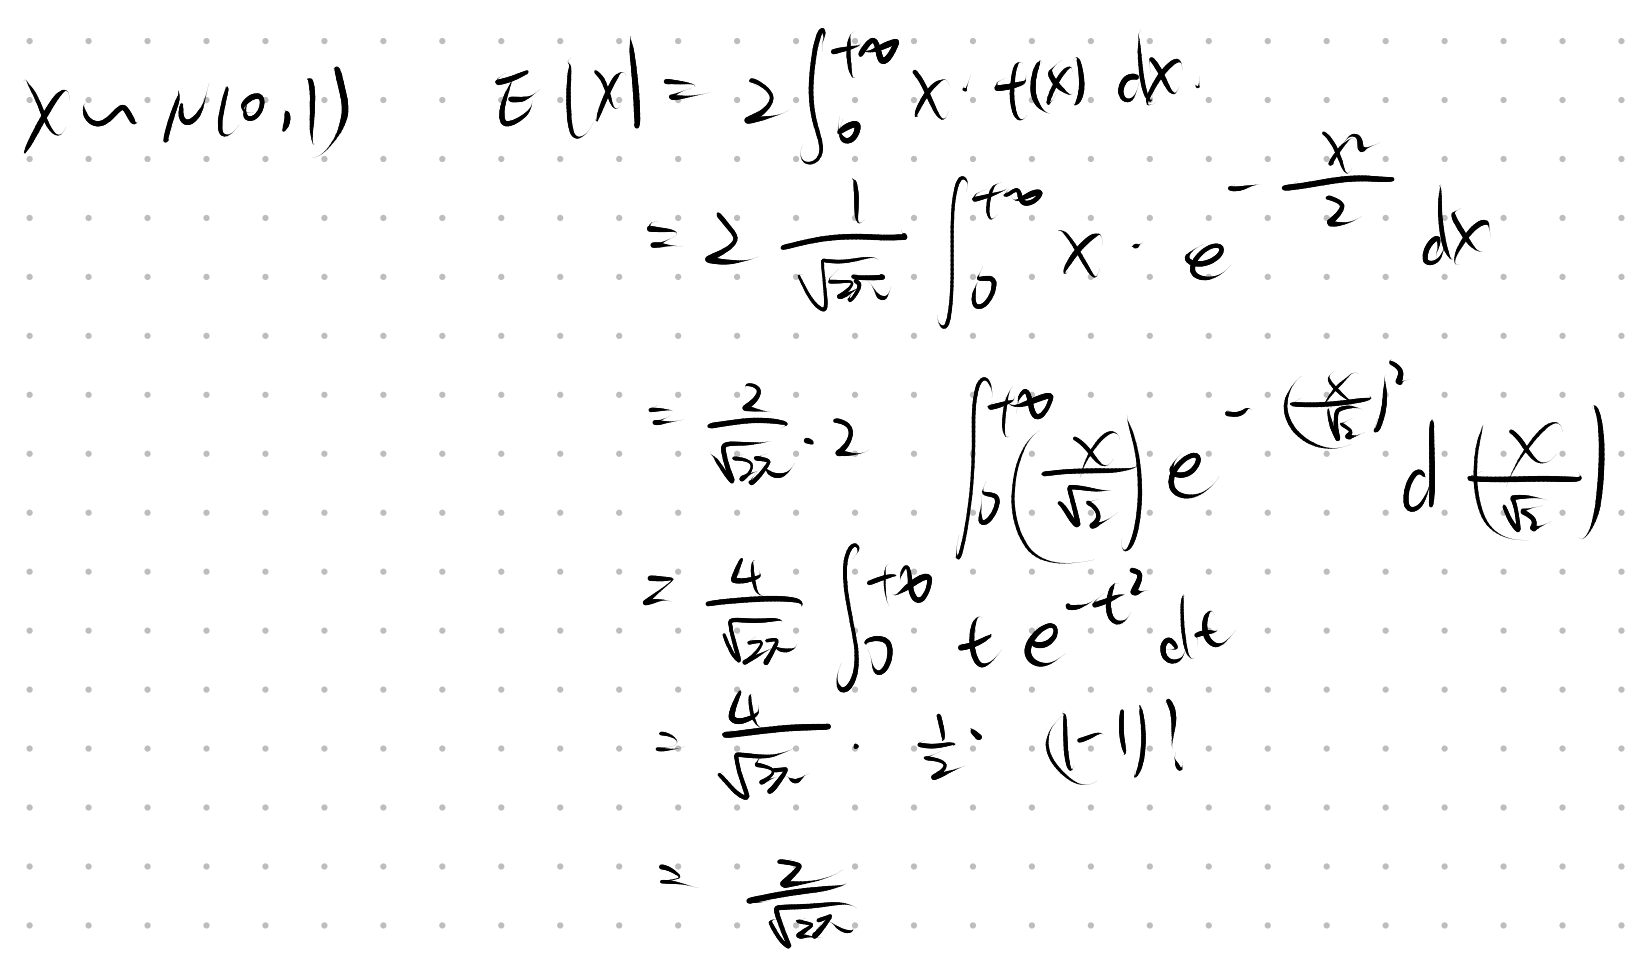 X ~ N(0,1) E|X| = 2∫₀^{+∞} x · f(x) dx.
= 2 \frac{1}{\sqrt{2π}} ∫₀^{+∞} x · e^{-\frac{x²}{2}} dx
= \frac{2}{\sqrt{2π}} · 2 ∫₀^{+∞} (\frac{x}{\sqrt{2}}) e^{-(\frac{x}{\sqrt{2}})²} d(\frac{x}{\sqrt{2}})
= \frac{4}{\sqrt{2π}} ∫₀^{+∞} t e^{-t²} dt
= \frac{4}{\sqrt{2π}} · \frac{1}{2} · (1-1)!
= \frac{2}{\sqrt{2π}}